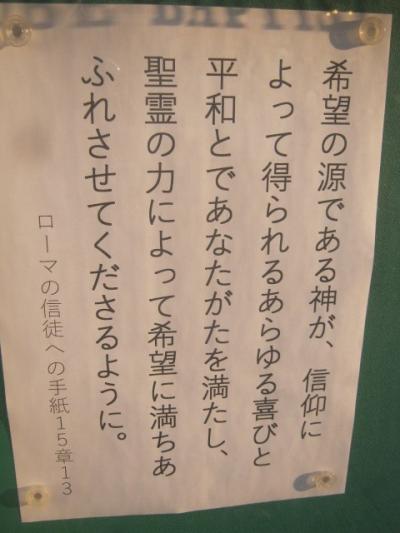 希望の源である神が、信仰に
よって得られるあらゆる喜びと
平和とであなたがたを満たし、
聖霊の力によって希望に満ちあ
ふれさせてくださるように。
ローマの信徒への手紙15章13